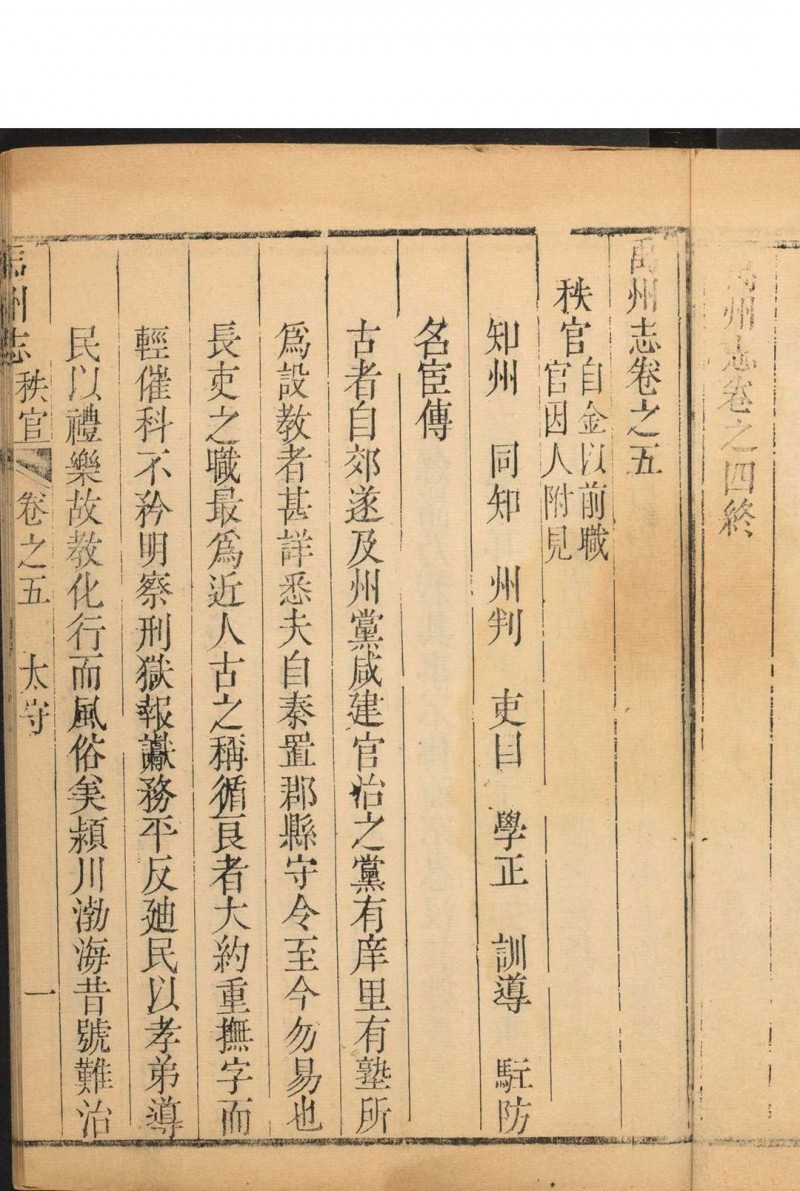 禹州志卷之四終
禹州志卷之五
秩官自金以前職
官因人附見
知州 同知 州判 吏目 學正 訓導 駐防
名宦傳
古者自郊遂及州黨咸建官治之黨有庠里有塾所
爲設教者甚詳悉夫自秦置郡縣守令至今勿易也
長吏之職最爲近人古之稱循良者大約重撫字而
輕催科不矜明察刑獄報讞務平反廸民以孝弟導
民以禮樂故教化行而風俗美潁川渤海昔號難治
禹州志 秩官 卷之五 太守 一